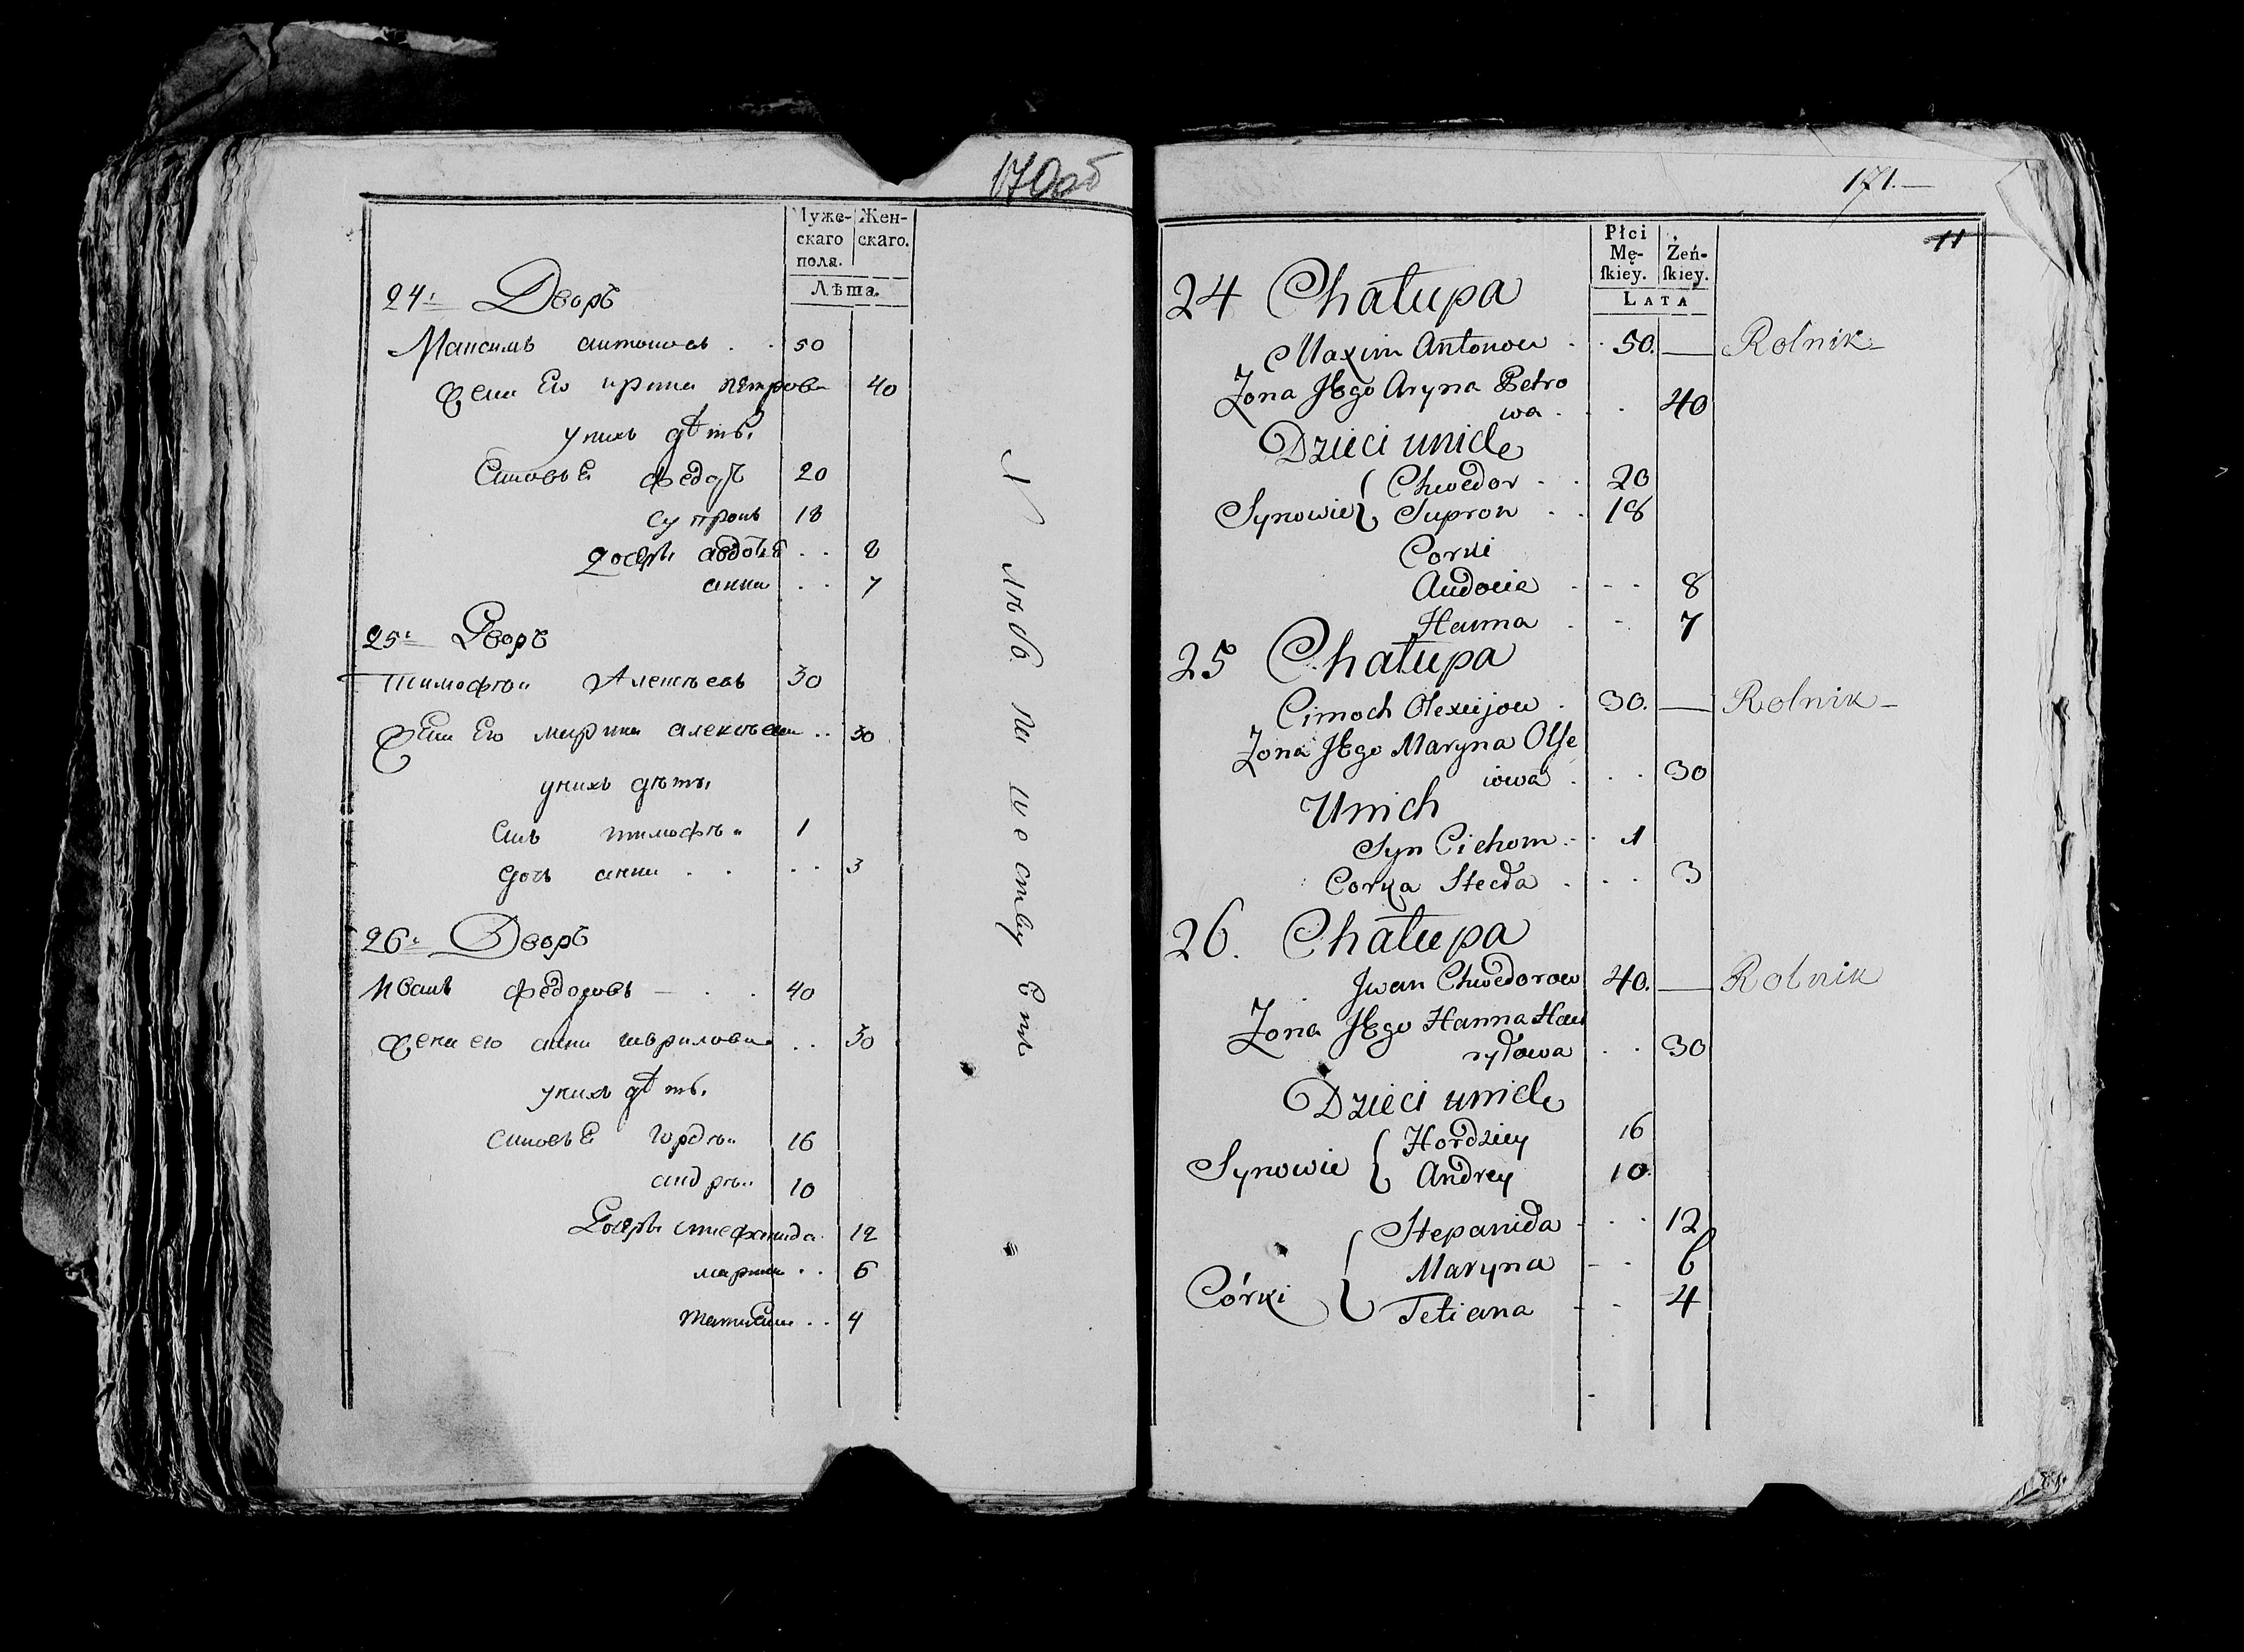 170об
Муже- Жен-
скаго скаго.
пола.
Лѣта.
24: Дворъ
Максимъ антоновъ . . 50
Жена Его ирина петрова 40
у нихъ дѣти.
Синовьѣ федоръ 20
супронъ 18
дочери авдотьѣ . . 8
анна . . 7
25: Дворъ
тимофѣи Алексѣевъ 30
Жена Его марина алексѣева . . 30
у нихъ дѣти,
Синъ тимофѣи 1
дочь анна . . . . 3
26: Дворъ
Иванъ федоровъ — . . 40
Жена его анна гаврилова . . 30
у нихъ дѣти.
синовьѣ гордѣи 16
андрѣи 10
Дочери стефанида 12
марина . . 6
татиана . . 4
171.—
11
Płci Żeń-
Mę- skiey.
skiey.
LATA
24 Chałupa
Maxim Antonow . . 50. — Rolnik
Żona Jego Aryna Petro
wa . . . 40
Dzieci unich
Chwedor . . 20
Synowie Supron . . 18
Corki
Audocia . - - 8
Hanna . - . 7
25 Chałupa
Cimoch Olexiejow . 30. — Rolnik
Żona Jego Maryna Olse
iowa . . . 30
Unich
Syn Cichom . . 1
Corka Stecda . . . 3
26. Chałupa
Jwan Chwedorow 40. — Rolnik
Żona Jego Hanna Haw
ryłowa . . 30
Dzieci unich
Hordziey 16
Synowie Andrey 10.
Stepanida . . . 12
Maryna - - 6
Córki Tetiana - - 4